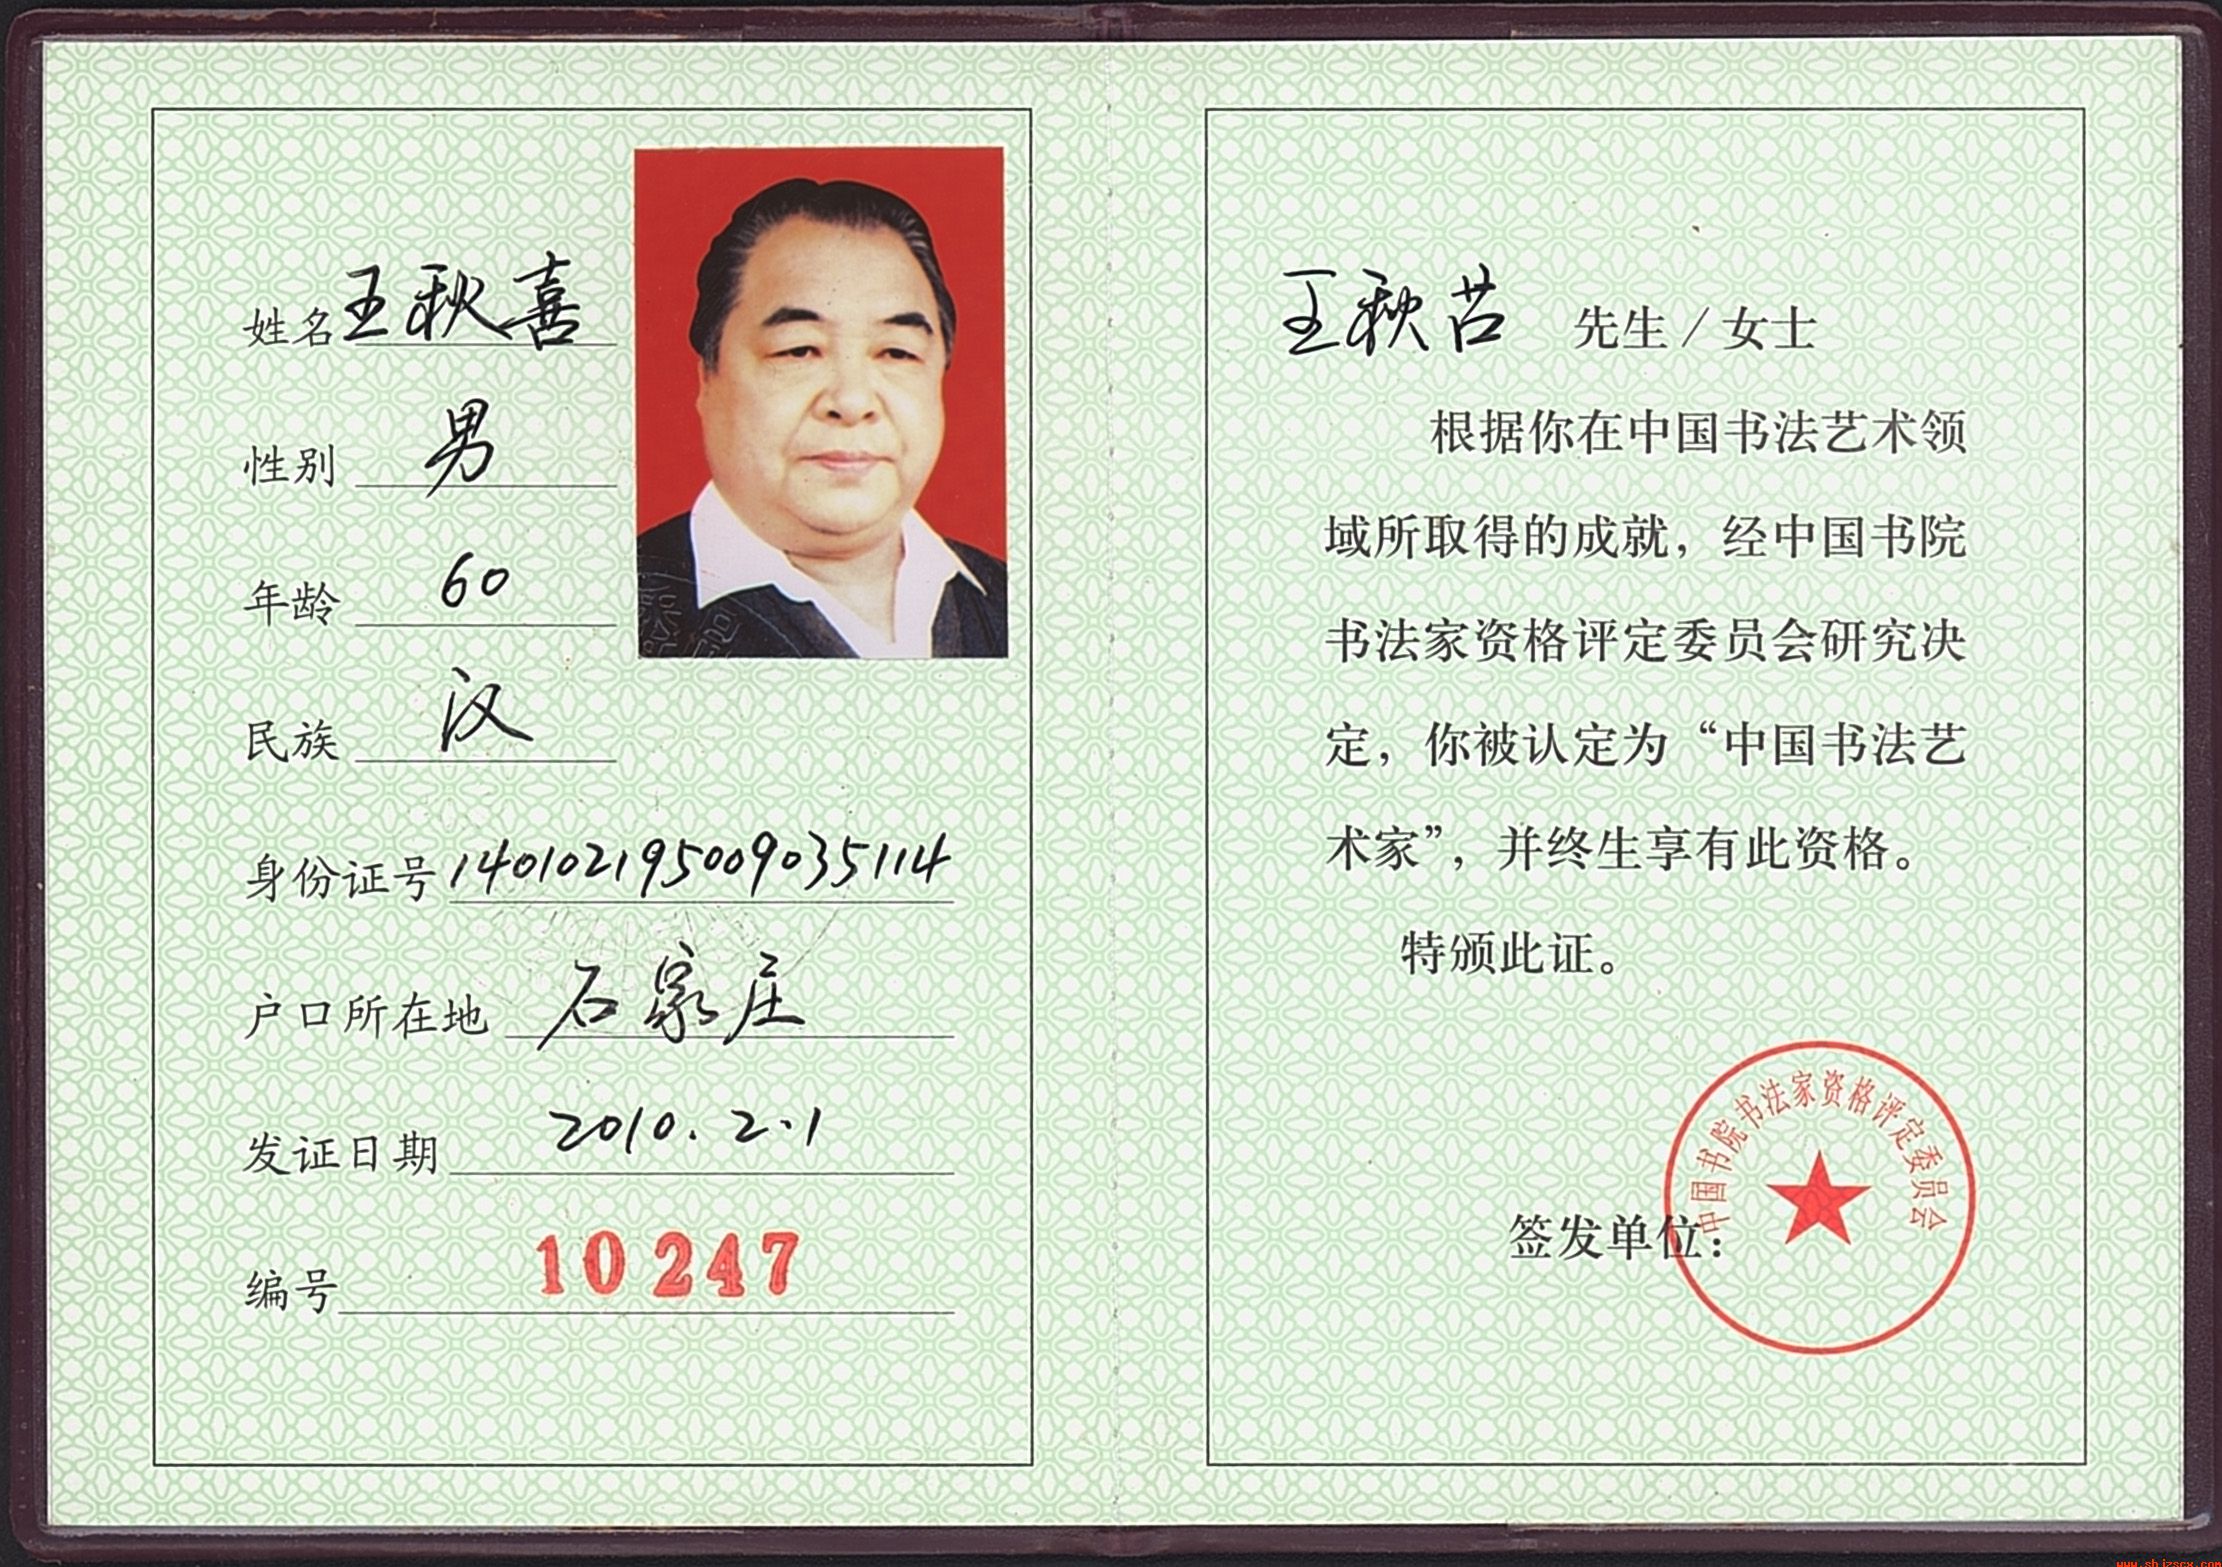 姓名 王秋喜
性别 男
年龄 60
民族 汉
身份证号 140102195009035114
户口所在地 石家庄
发证日期 2010.2.1
编号 10247
王秋 先生/女士
根据你在中国书法艺术领
域所取得的成就，经中国书院
书法家资格评定委员会研究决
定，你被认定为“中国书法艺
术家”，并终生享有此资格。
特颁此证。
签发单位：
中国书院书法家资格评定委员会
www.shjzscx.com